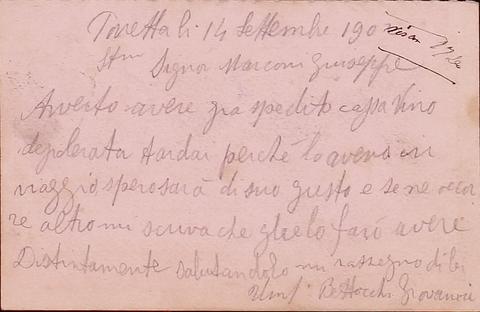 li 14 Settembre 190
Signor Marconi Giuseppe
Averto avere gia spedito cassa vino
tardai perche lo avevo in
viaggio spero sara di suo gusto e se ne occor
re altro mi scriva che glielo faro avere
Distintamente salutandolo mi rassegno di lei
Giovanni